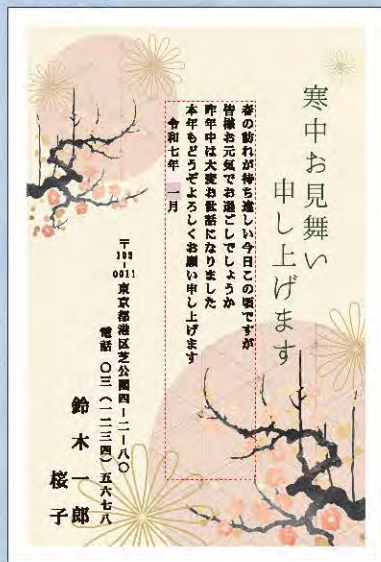 寒中お見舞い
申し上げます
春の訪れが待ち遠しい今日この頃ですが
皆様お元気でお過ごしでしょうか
昨年中は大変お世話になりました
本年もどうぞよろしくお願い申し上げます
令和七年 一月
〒105-0011
東京都港区芝公園四-二-八〇
電話 〇三(一二三四)五六七八
鈴木一郎
桜子